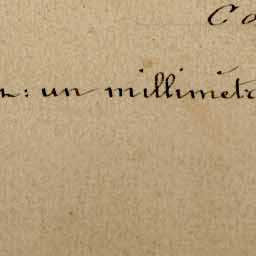 Co
n: un millimètr